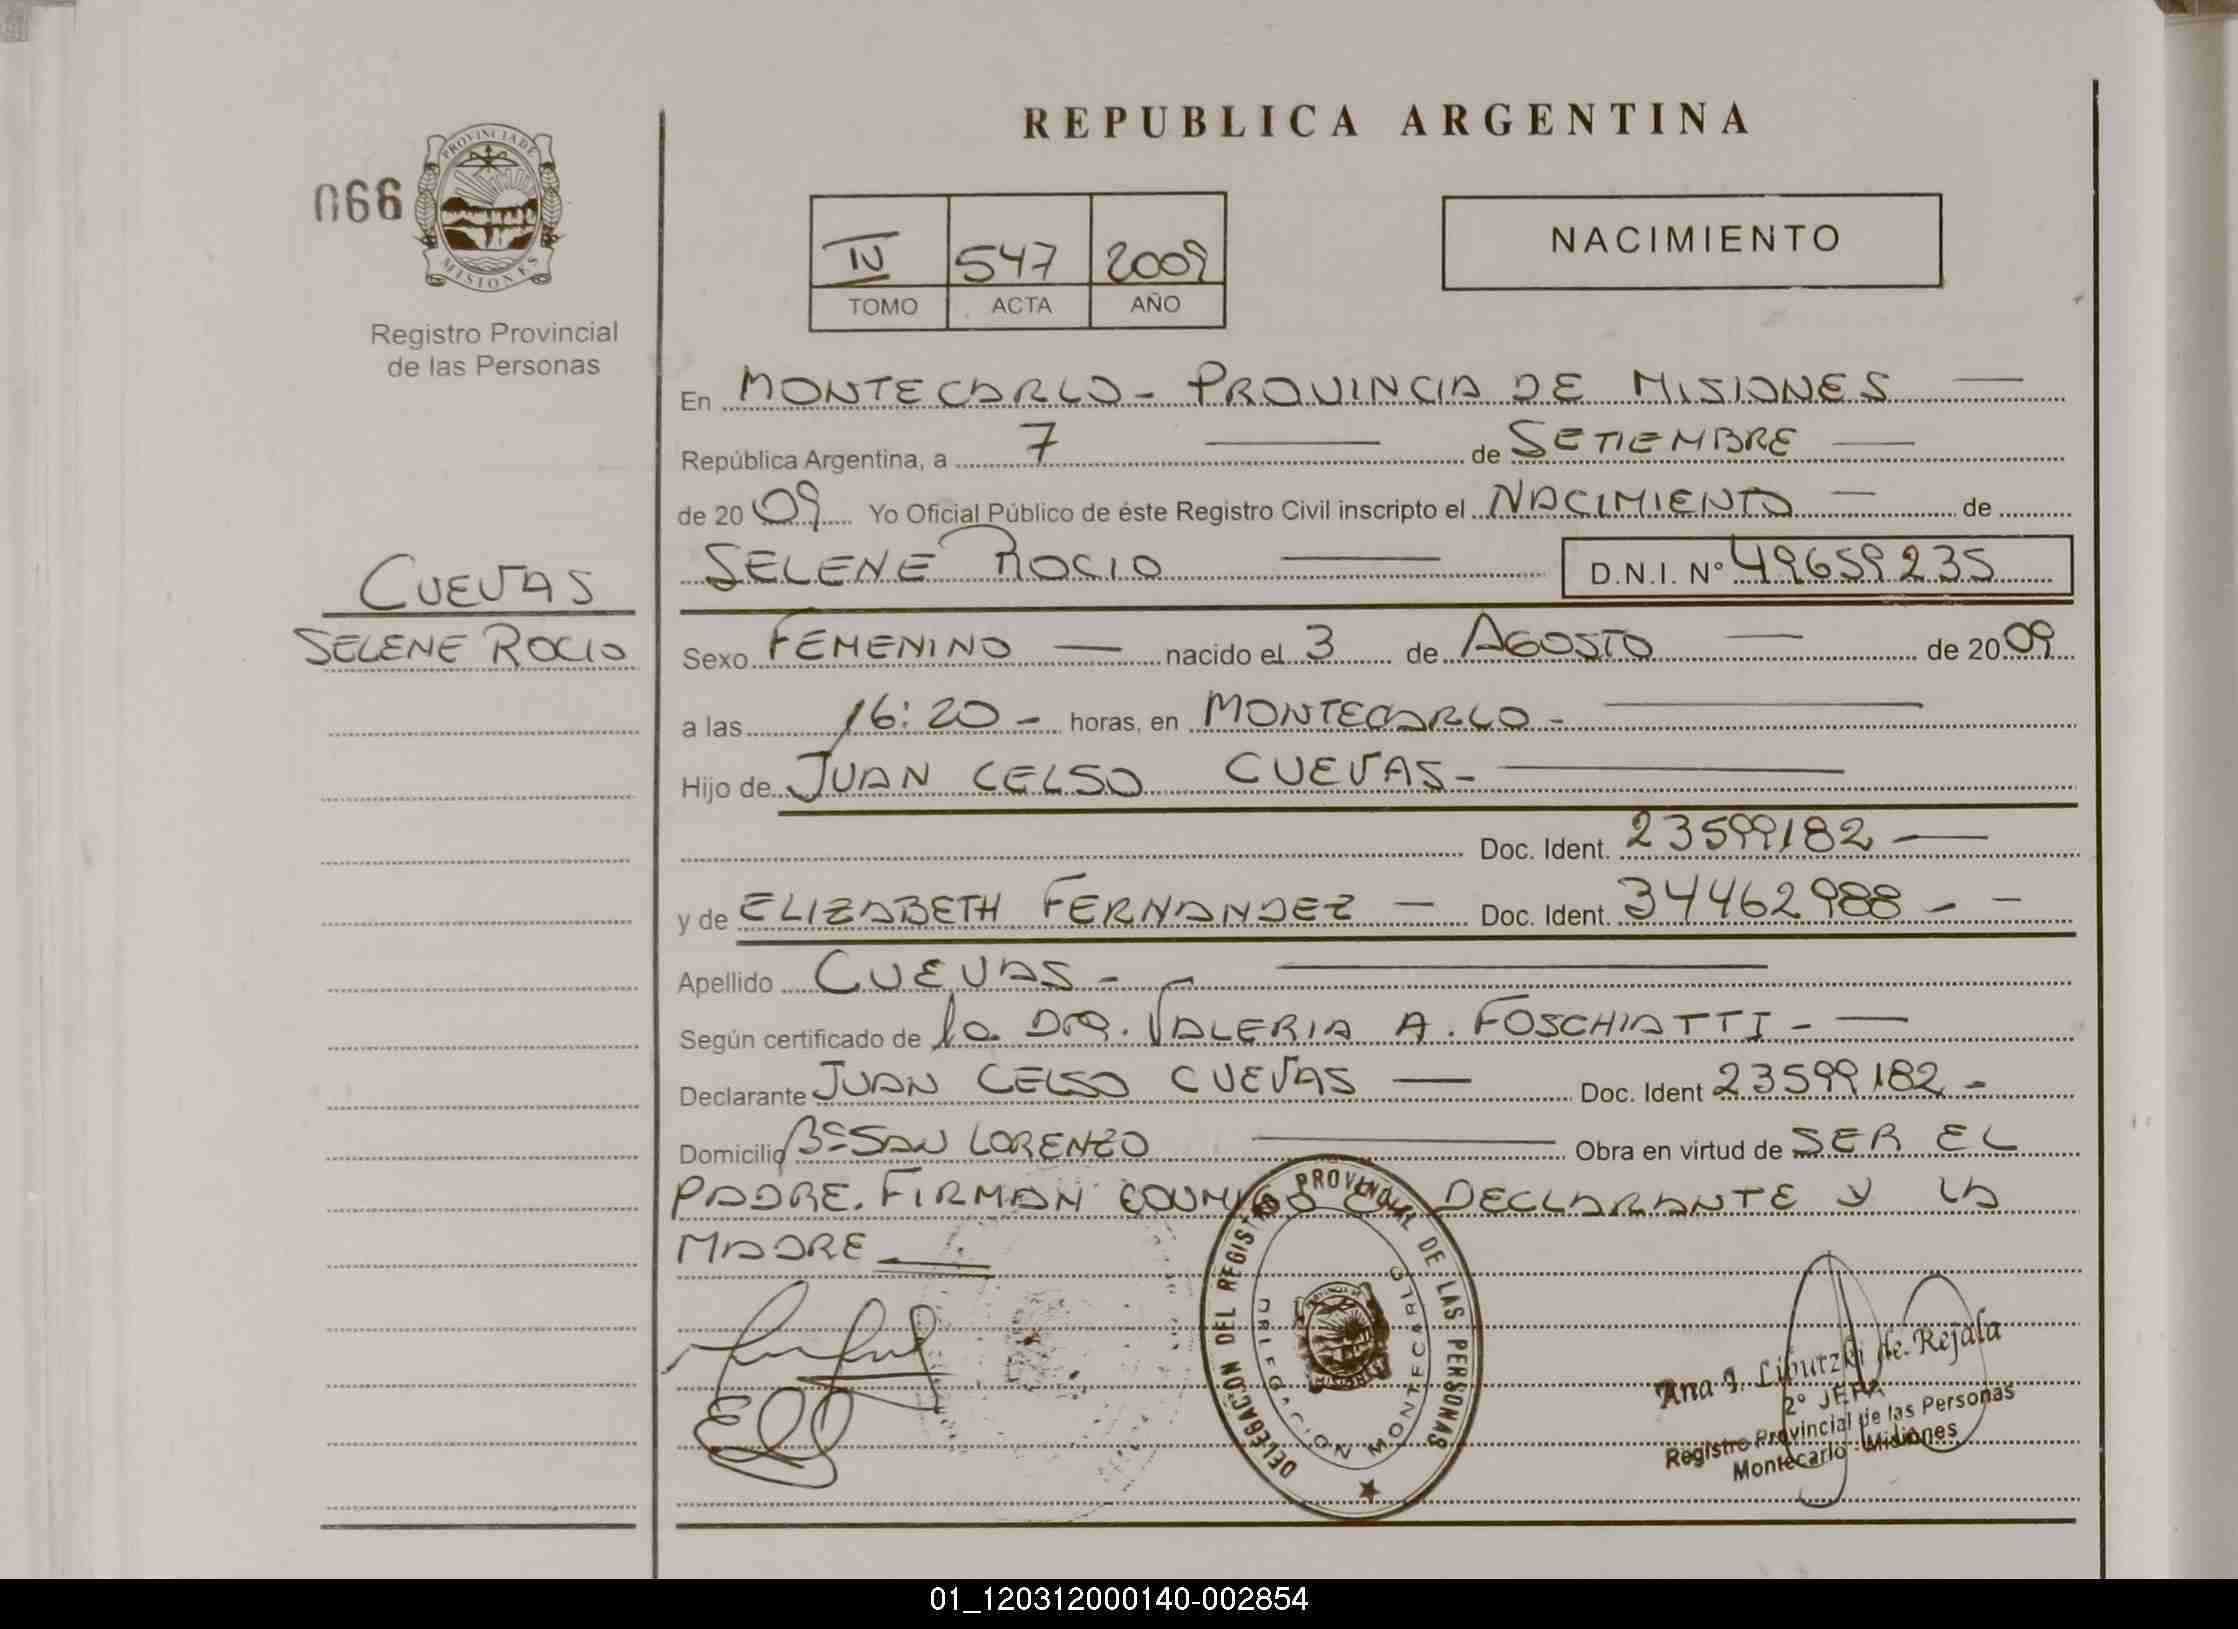 REPUBLICA ARGENTINA
066
PROVINCIA DE
MISIONES
Registro Provincial
de las Personas
IV 547 2009
TOMO ACTA AÑO
NACIMIENTO
En MONTECARLO - PROVINCIA DE MISIONES —
República Argentina, a 7 — de SETIEMBRE —
de 2009 Yo Oficial Público de éste Registro Civil inscripto el NACIMIENTO — de
SELENE ROCIO — D.N.I. N° 49659235
CUEVAS
SELENE ROCIO
Sexo FEMENINO — nacido el 3 de AGOSTO — de 2009
a las 16:20 - horas, en MONTECARLO - —
Hijo de JUAN CELSO CUEVAS - —
Doc. Ident. 23599182 —
y de ELIZABETH FERNANDEZ — Doc. Ident. 34462988 - -
Apellido CUEVAS - —
Según certificado de la DRA. VALERIA A. FOSCHIATTI - —
Declarante JUAN CELSO CUEVAS — Doc. Ident 23599182 -
Domicilio Bº SAN LORENZO — Obra en virtud de SER EL
PADRE. FIRMAN CONMIGO EL DECLARANTE Y LA
MADRE
DELEGACION DEL REGISTRO PROVINCIAL DE LAS PERSONAS
DELEGACION MONTECARLO
Ana I. Libutzki de Rejala
2° JEFA
Registro Provincial de las Personas
Montecarlo - Misiones
01_120312000140-002854